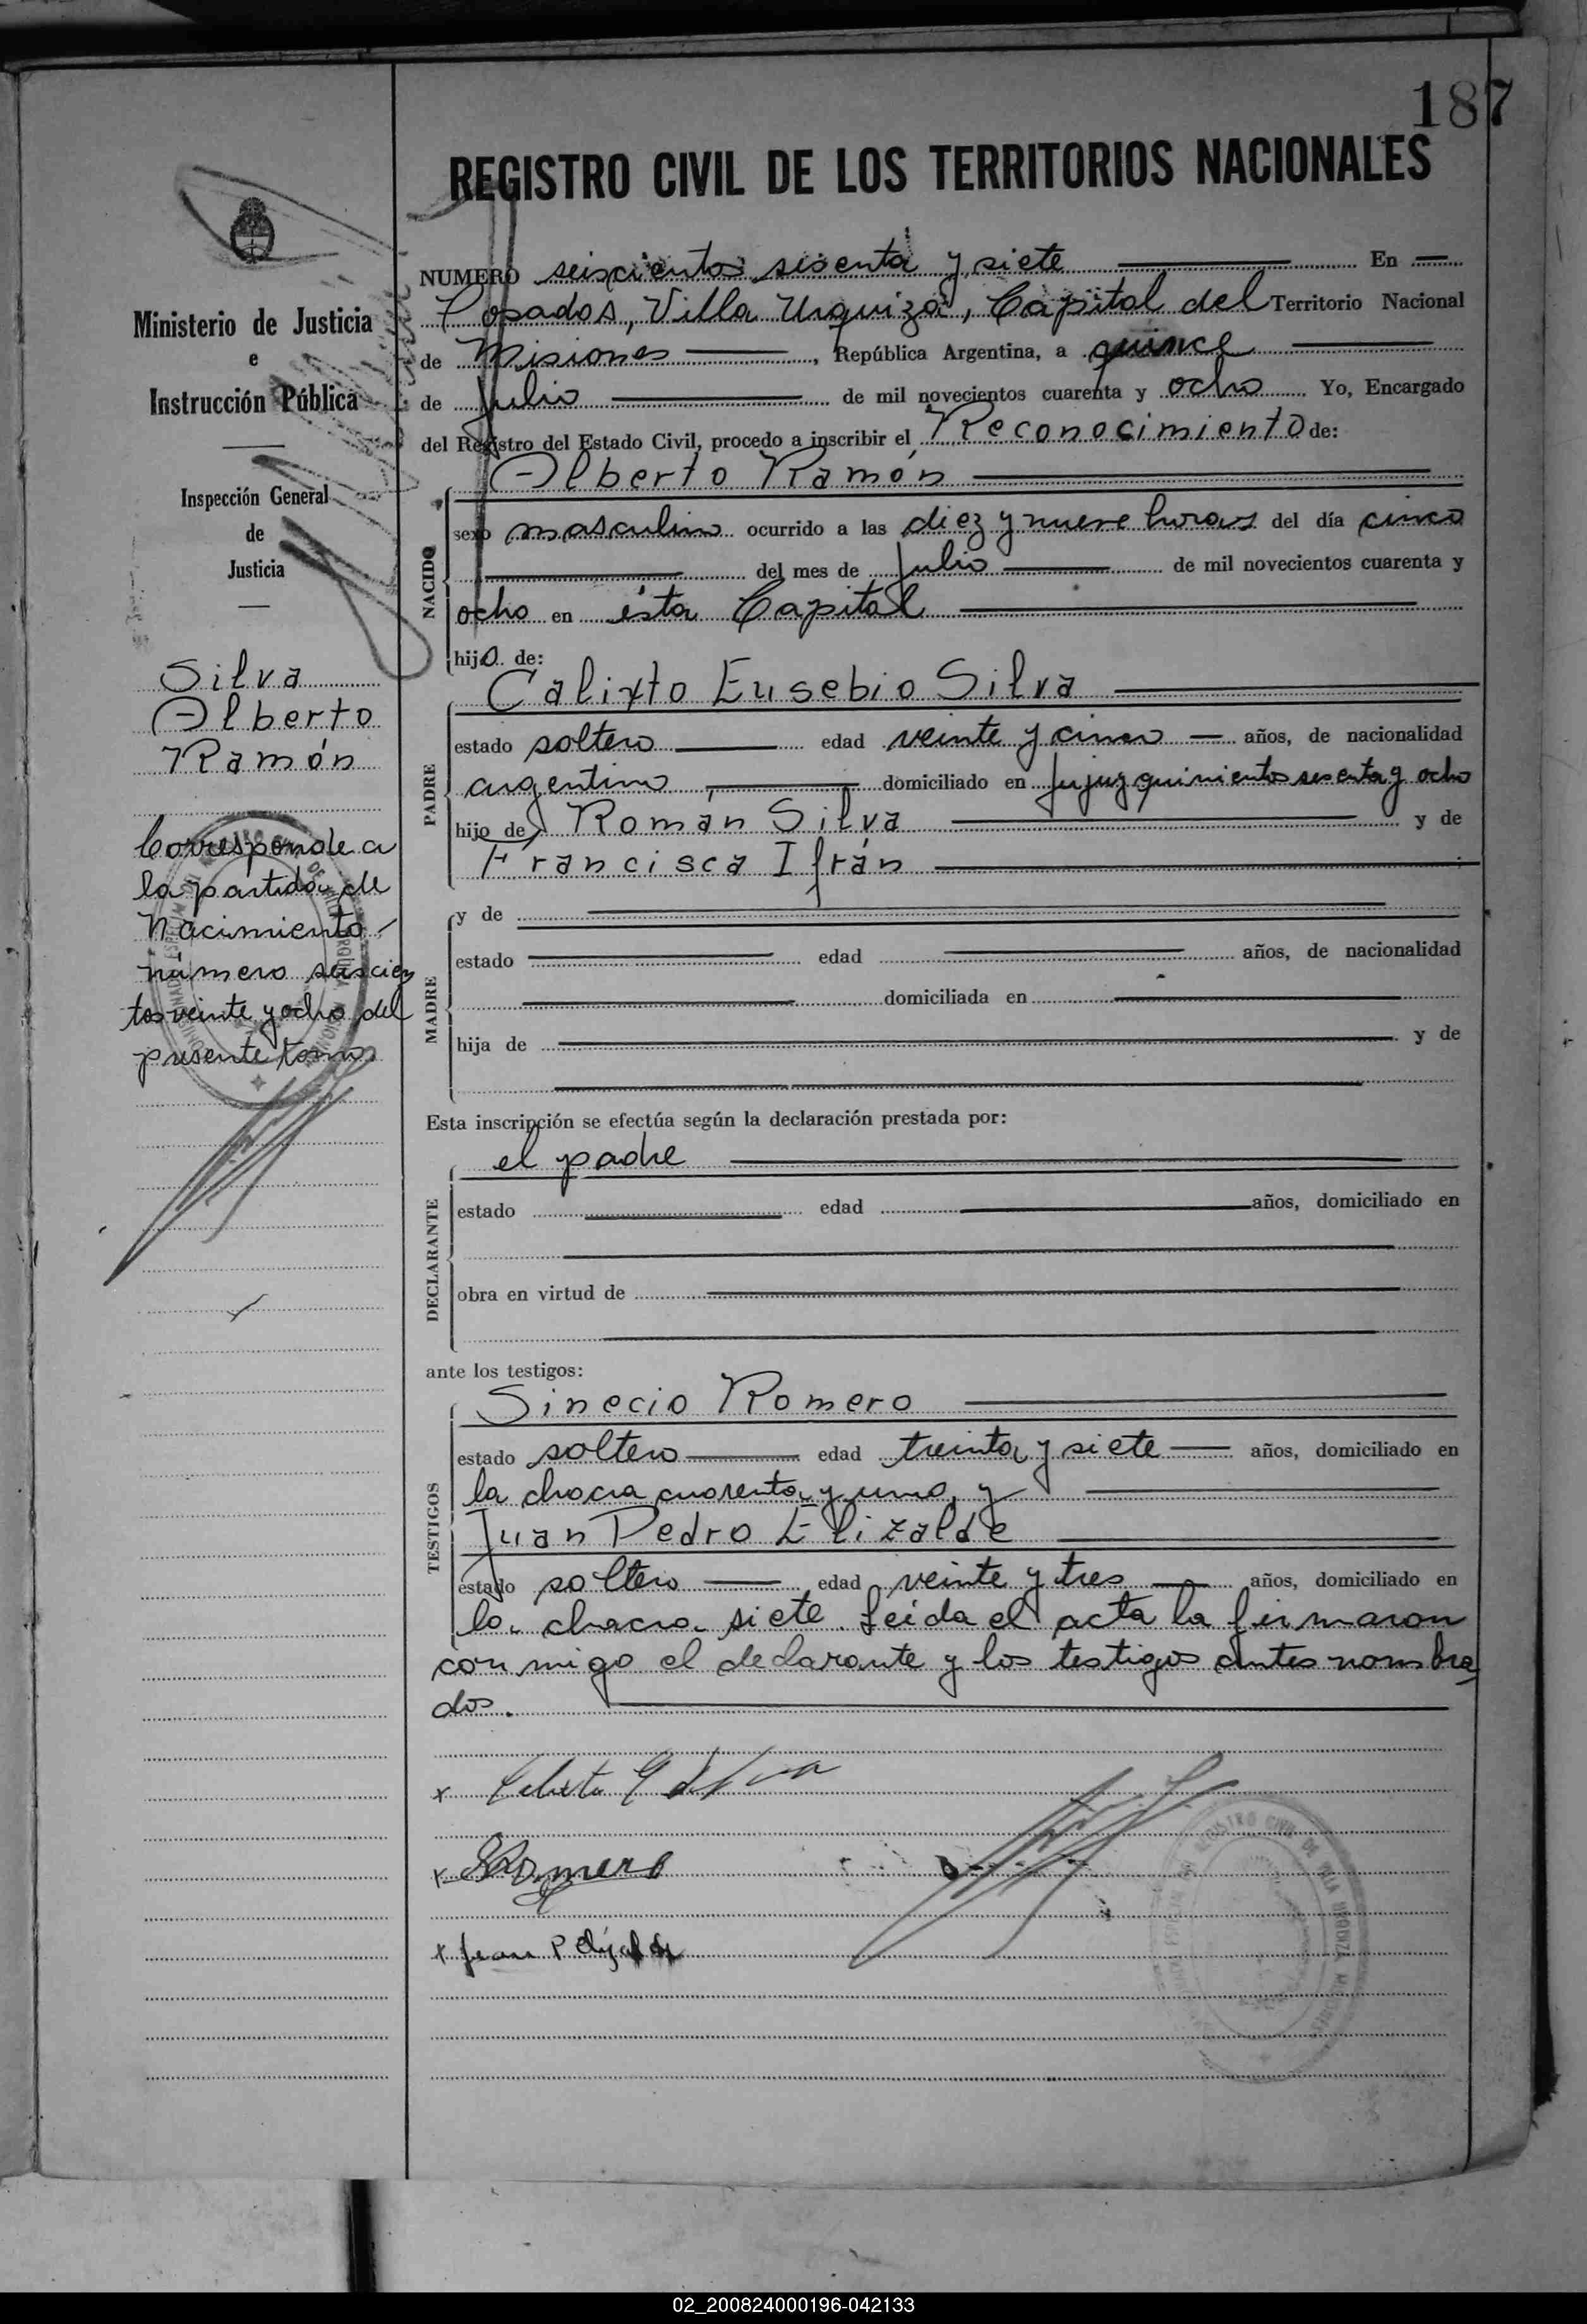 187
REGISTRO CIVIL DE LOS TERRITORIOS NACIONALES
Ministerio de Justicia
e
Instrucción Pública
Inspección General
de
Justicia
Silva
Alberto
Ramón
Corresponde a
la partida de
Nacimiento
número seiscien
tos veinte y ocho del
presente tomo
NUMERO seiscientos sesenta y siete En
Posadas, Villa Urquiza, Capital del Territorio Nacional
de Misiones, República Argentina, a quince
de Julio de mil novecientos cuarenta y ocho Yo, Encargado
del Registro del Estado Civil, procedo a inscribir el Reconocimiento de:
Alberto Ramón
NACIDO
sexo masculino ocurrido a las diez y nueve horas del día cinco
del mes de Julio de mil novecientos cuarenta y
ocho en ésta Capital
hijo de:
Calixto Eusebio Silva
PADRE
estado soltero edad veinte y cinco años, de nacionalidad
argentino domiciliado en Jujuy quinientos sesenta y ocho
hijo de Román Silva y de
Francisca Ifrán
y de
MADRE
estado edad años, de nacionalidad
domiciliada en
hija de y de
Esta inscripción se efectúa según la declaración prestada por:
el padre
DECLARANTE
estado edad años, domiciliado en
obra en virtud de
ante los testigos:
Sinecio Romero
TESTIGOS
estado soltero edad treinta y siete años, domiciliado en
la chacra cuarenta y uno, y
Juan Pedro Elizalde
estado soltero edad veinte y tres años, domiciliado en
la chacra siete. Leída el acta la firmaron
conmigo el declarante y los testigos antes nombra
dos.
x Calixto E Silva
x SRomero
x Juan P Elizalde
REGISTRO CIVIL DE VILLA URQUIZA MISIONES
02_200824000196-042133